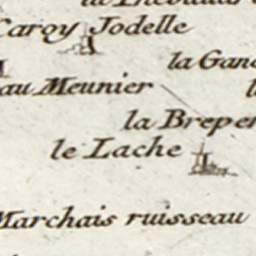 Caroy Jodelle
la Gan
au Meunier
la Breper
le Lache
Marchais ruisseau